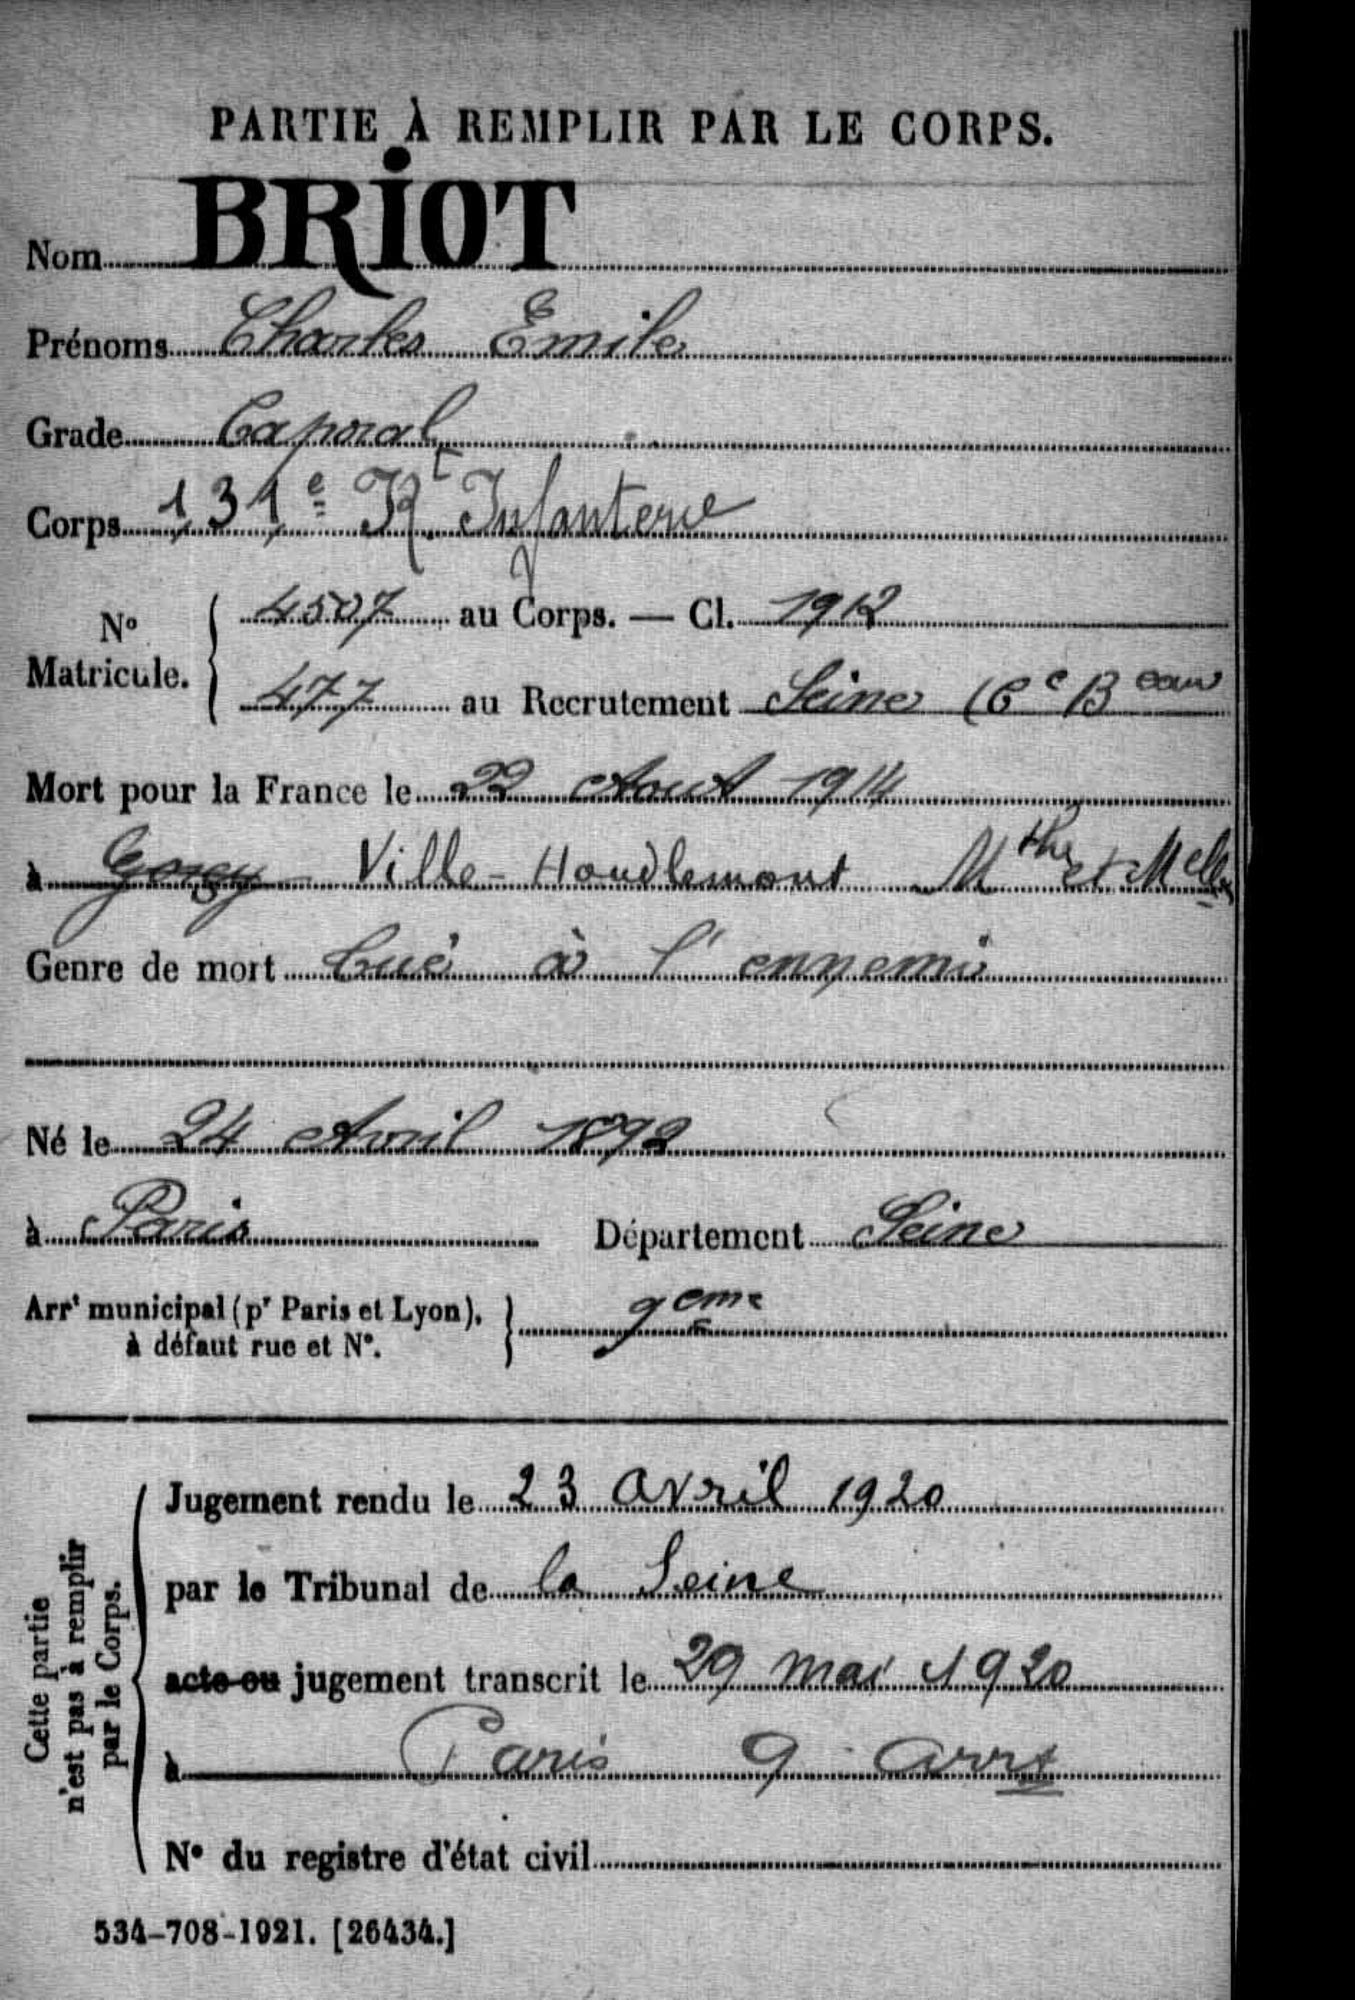 PARTIE À REMPLIR PAR LE CORPS.
Nom BRIOT
Prénoms Charles Emile
Grade Caporal
Corps 131e Rt Infanterie
No Matricule. 4507 au Corps. — Cl. 1912
477 au Recrutement Seine (6e Beau
Mort pour la France le 22 Aout 1914
à Gorcy Ville-Houdlemont Mthe et Melle
Genre de mort Tué à l'ennemi
Né le 24 Avril 1892
à Paris Département Seine
Arrt municipal (pr Paris et Lyon), à défaut rue et No. 9eme
Cette partie n'est pas à remplir par le Corps.
Jugement rendu le 23 avril 1920
par le Tribunal de la Seine
acte ou jugement transcrit le 29 mai 1920
à Paris 9 arrt
No du registre d'état civil
534-708-1921. [26434.]